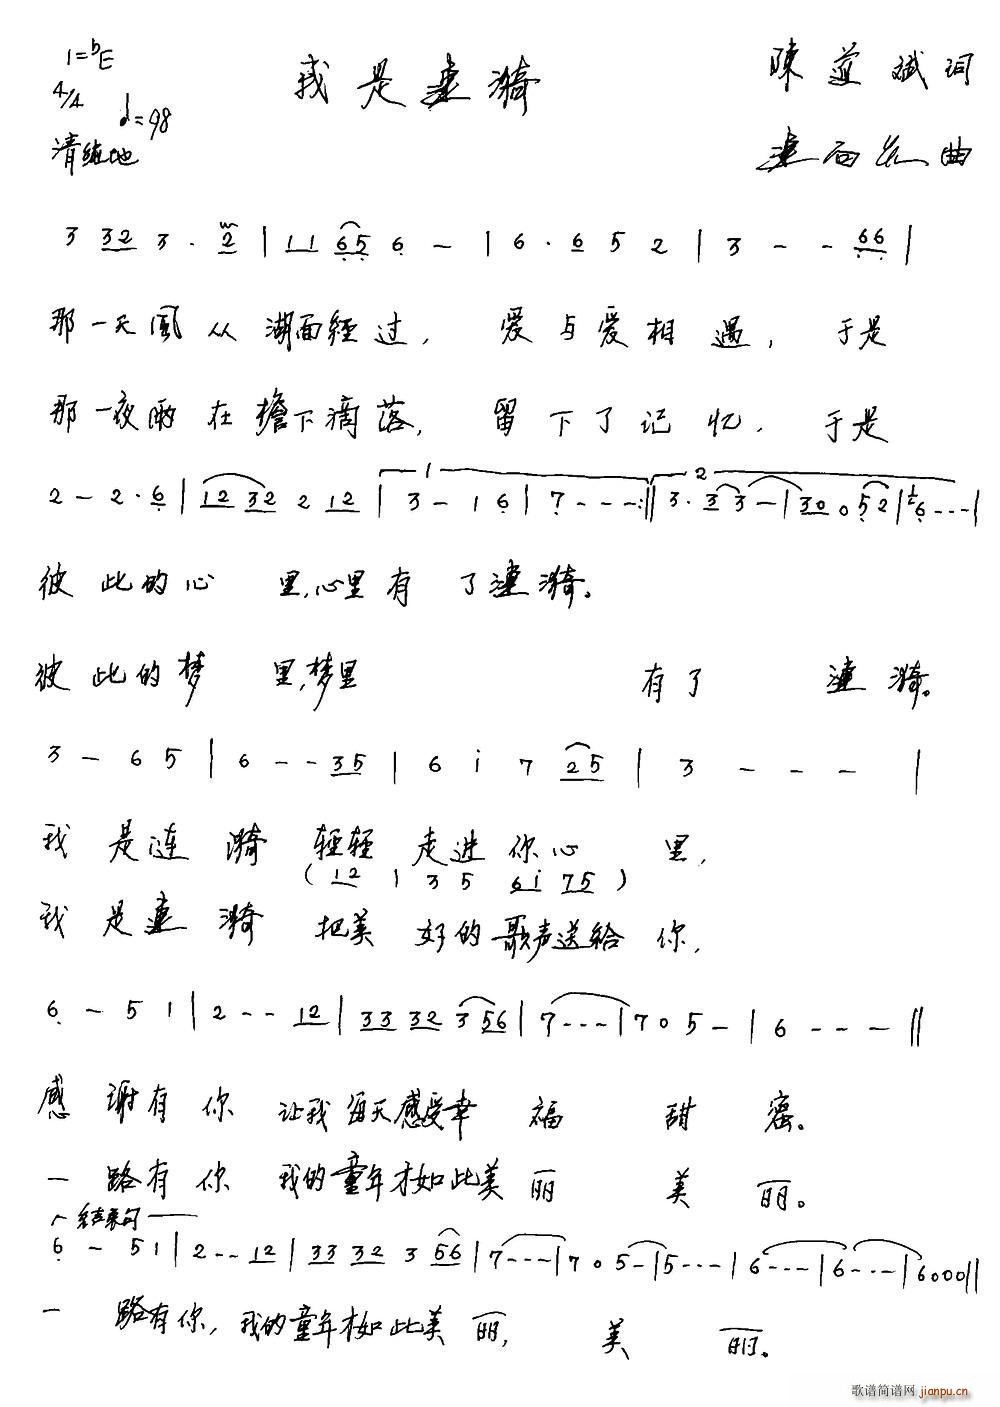 1=bE
我是涟漪
陳道斌词
4/4
♩=98
清纯地
曲
3 32 3 · 2 | 11 65 6 - | 6 · 6 5 2 | 3 - - 66 |
那一天風从湖面經过, 爱与爱相遇, 于是
那一夜雨在檐下滴落, 留下了记忆, 于是
2 - 2 · 6 | 12 32 2 12 | 1 3 - 1 6 | 7 - - - :|| 2 3 · 3 3 - | 30 0 52 | 1 6 - - - |
彼此的心里,心里有了漣漪。
彼此的梦里,梦里有了漣漪。
3 - 6 5 | 6 - - 35 | 6 i 7 25 | 3 - - - |
我是涟漪轻轻走进你心里,
( 12 1 3 5 6i 75 )
我是漣漪把美好的歌声送給你,
6 - 5 1 | 2 - - 12 | 33 32 3 56 | 7 - - - | 7 0 5 - | 6 - - - ||
感谢有你让我每天感受幸福甜蜜。
一路有你我的童年才如此美丽美丽。
结束句
6 - 5 1 | 2 - - 12 | 33 32 3 56 | 7 - - - | 7 0 5 - | 5 - - - | 6 - - - | 6 - - - | 6000 ||
一路有你,我的童年才如此美丽,美丽。
歌谱简谱网 jianpu.cn